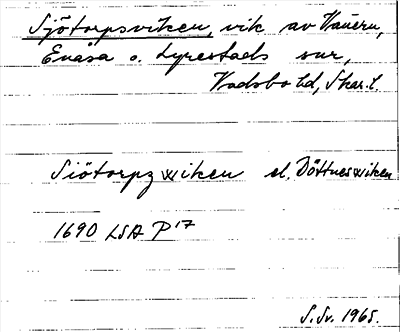 Sjötorpsviken, vik av Vänern,
Enåsa o. Lyrestads snr,
Vadsbo hd, Skar. l.
Siötorpz wiken el. Döttneswiken
1690 LSA P 17
S. Sv. 1965.